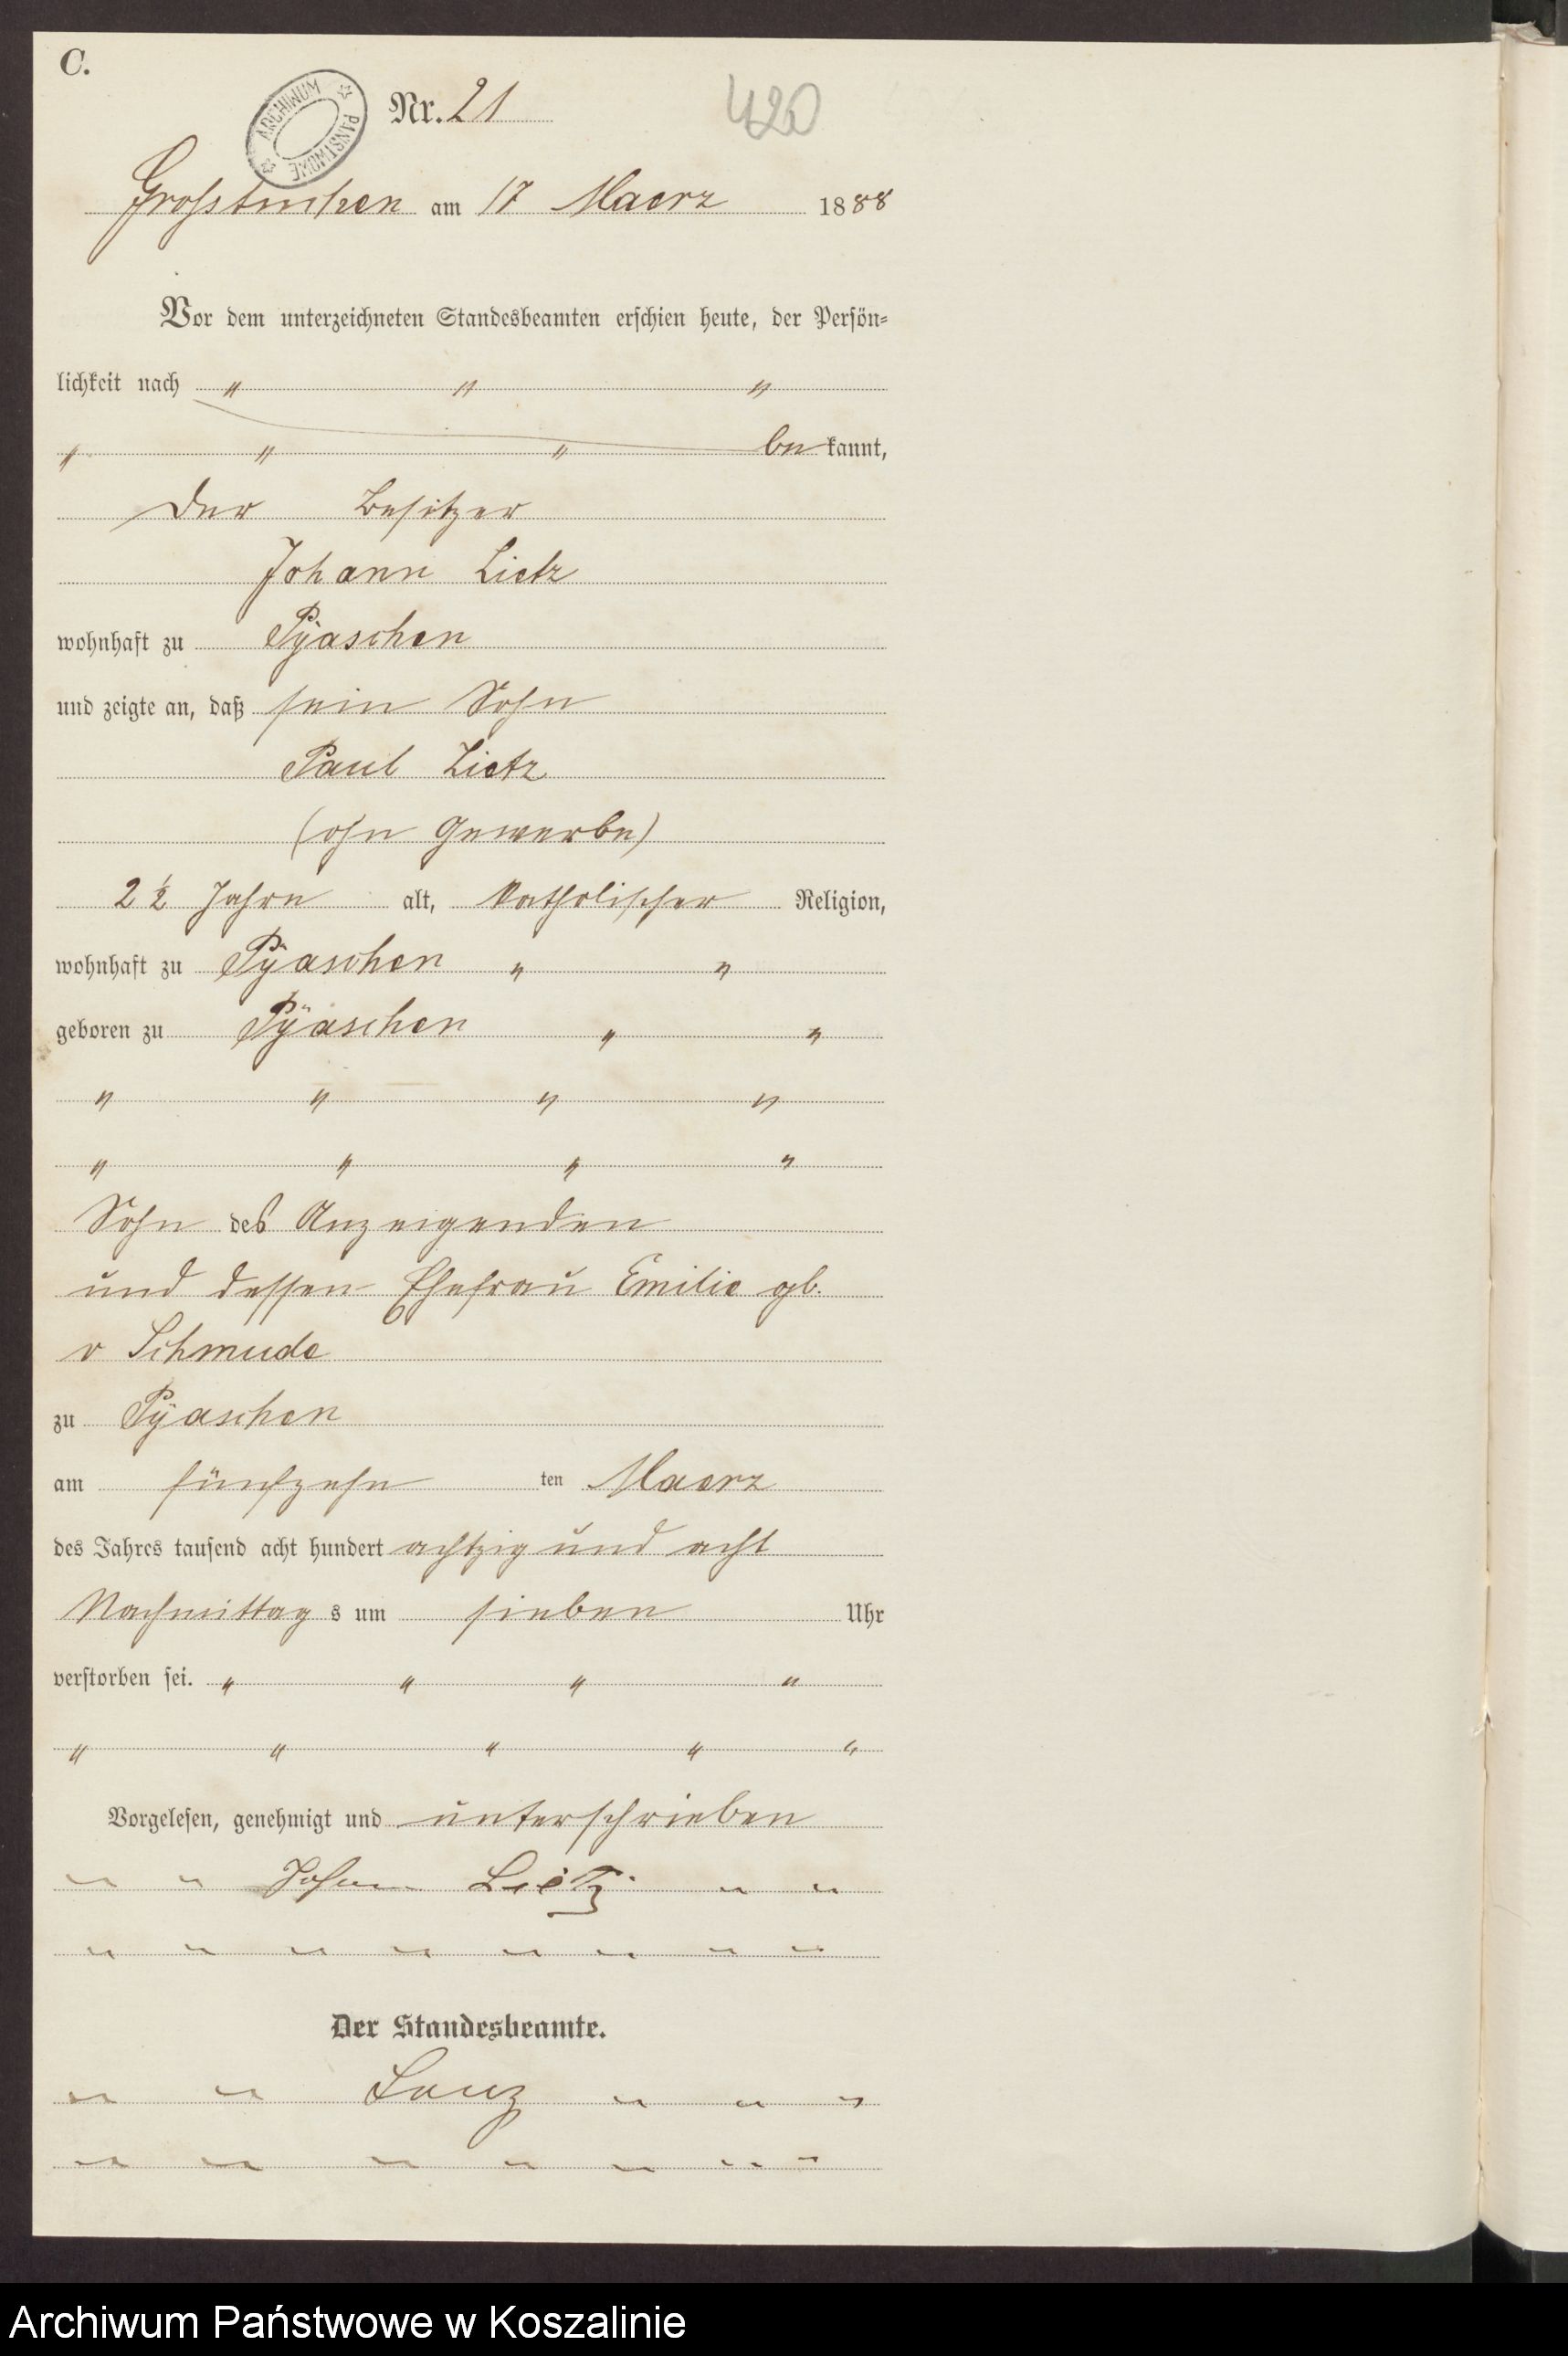 C.
ARCHIWUM PAŃSTWOWE
Nr. 21
420
Grosstuchen am 17 Maerz 1888
Vor dem unterzeichneten Standesbeamten erschien heute, der Persön-
lichkeit nach " " "
" " " bekannt,
der Besitzer
Johann Lietz
wohnhaft zu Pyaschen
und zeigte an, daß sein Sohn
Paul Lietz
(ohn Gewerbe)
2 ½ Jahre alt, katholischer Religion,
wohnhaft zu Pÿaschen " "
geboren zu Pÿaschen " "
" " " "
" " " "
Sohn des Anzeigenden
und dessen Ehefrau Emilie gb.
v Schmude
zu Pÿaschen
am fünfzehn ten Maerz
des Jahres tausend acht hundert achtzig und acht
Nachmittag s um sieben Uhr
verstorben sei. " " " "
" " " " "
Vorgelesen, genehmigt und unterschrieben
" " Johann Lietz " "
" " " " " " " "
Der Standesbeamte.
" " " " "
" " " " " " "
Archiwum Państwowe w Koszalinie